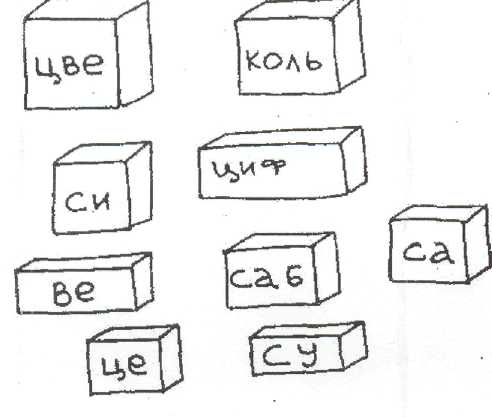 цве
коль
си
циф
са
ве
саб
це
су